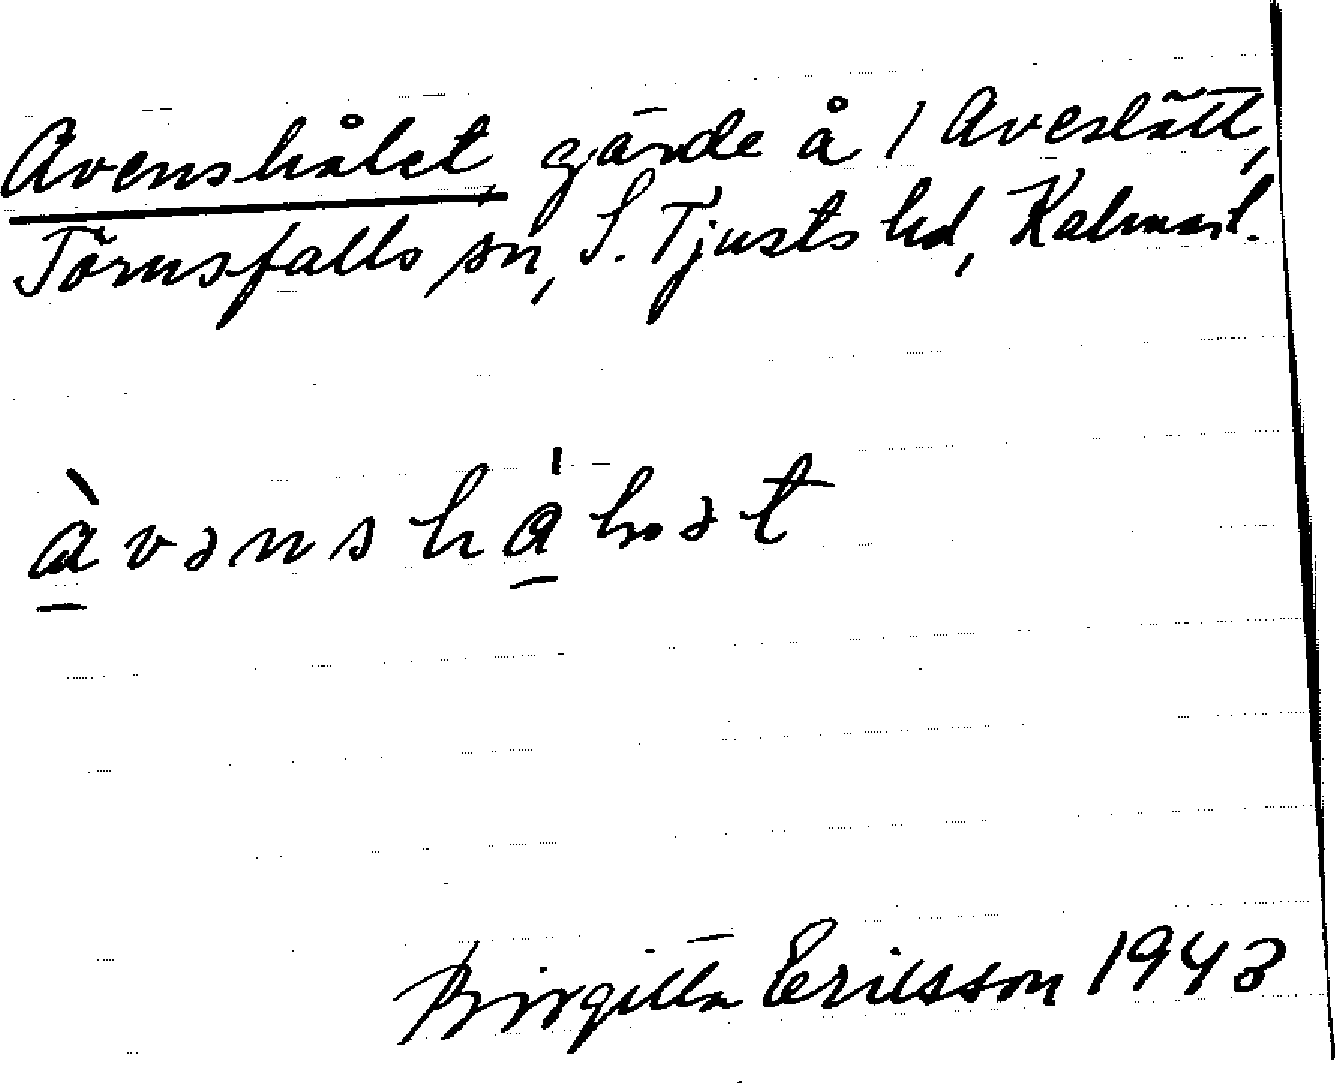 Avenshålet, gärde å 1 Aveslätt,
Törnsfalls sn, S. Tjusts hd, Kalmar l.
àvənshálət
Birgitta Eriksson 1943